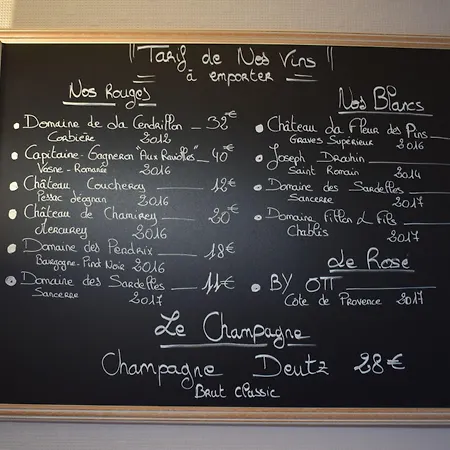 Tarif de Nos Vins
à emporter
Nos Rouges
Domaine de la Cendrillon 32€
Corbière 2012
Capitaine-Gagneron 40€
Vosne-Romanée 2016
Château Coucheroy 12€
Pessac Léognan 2016
Château de Chamirey 20€
Mercurey 2017
Domaine des Perdrix 18€
Bourgogne-Pinot Noir 2016
Domaine des Sardelles 11€
Sancerre 2017
Nos Blancs
Château La Fleur des Pins
Graves Supérieur 2016
Joseph Drouhin
Saint Romain 2014
Domaine des Sardelles
Sancerre 2017
Domaine Fillon & Fils
Chablis 2017
Le Rosé
BY OTT
Côte de Provence 2017
Le Champagne
Champagne Deutz 28€
Brut Classic